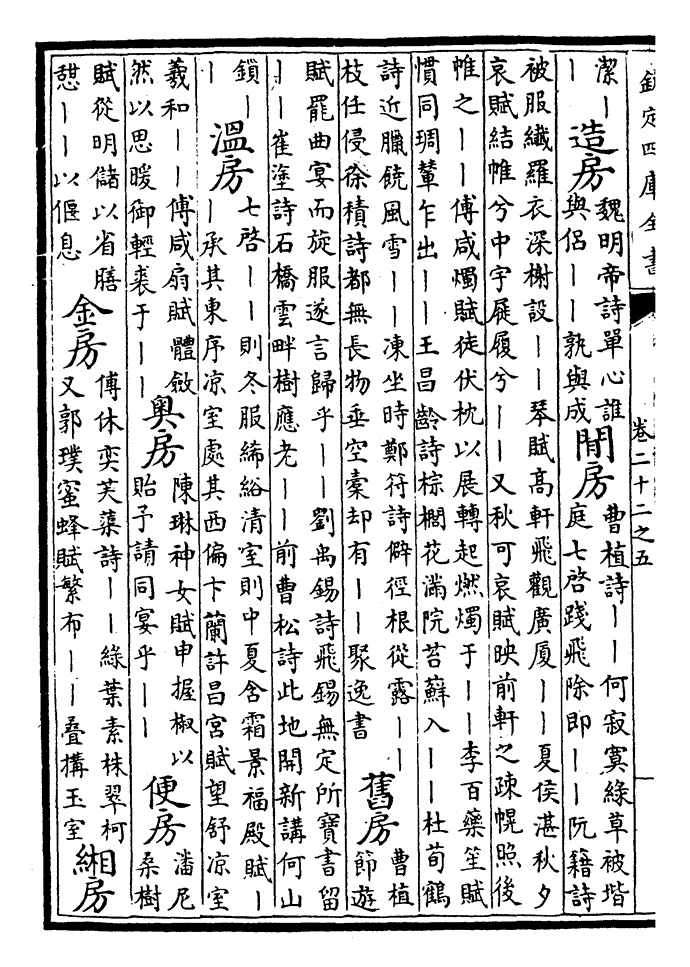 欽定四庫全書
卷二十二之五
潔丨
丨
造房
魏明帝詩單心誰
與侶丨丨孰與成
閒房
曹植詩丨丨何寂寞綠草被堦
庭七啓踐飛除即丨丨阮籍詩
被服纖羅衣深榭設丨丨琴賦高軒飛觀廣厦丨丨夏侯湛秋夕
哀賦結帷兮中宇屣履兮丨丨又秋可哀賦映前軒之疎幌照後
帷之丨丨傅咸燭賦徒伏枕以展轉起燃燭于丨丨李百藥笙賦
慣同琱輦乍出丨丨王昌齡詩棕櫚花滿院苔蘚入丨丨杜荀鶴
詩近臘饒風雪丨丨凍坐時鄭符詩僻徑根從露丨丨
枝任侵徐積詩都無長物垂空橐却有丨丨聚逸書
舊房
曹植
節遊
賦罷曲宴而旋服遂言歸乎丨丨劉禹錫詩飛錫無定所寶書留
丨丨崔塗詩石橋雲畔樹應老丨丨前曹松詩此地開新講何山
鎖丨
丨
溫房
七啓丨丨則冬服絺綌清室則中夏含霜景福殿賦丨
丨承其東序凉室處其西偏卞蘭許昌宮賦望舒凉室
羲和丨丨傅咸扇賦體斂
然以思暖御輕裘于丨丨
奥房
陳琳神女賦申握椒以
貽子請同宴乎丨丨
便房
潘尼
桑樹
賦從明儲以省膳
憇丨丨以偃息
金房
傅休奕芙蕖詩丨丨綠葉素株翠柯
又郭璞蜜蜂賦繁布丨丨疊搆玉室
緗房